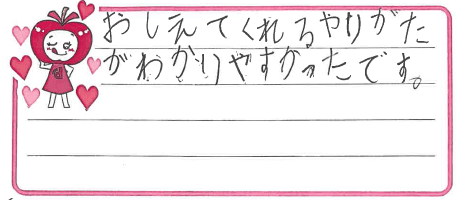 おしえてくれるやりがた
がわかりやすかったです。